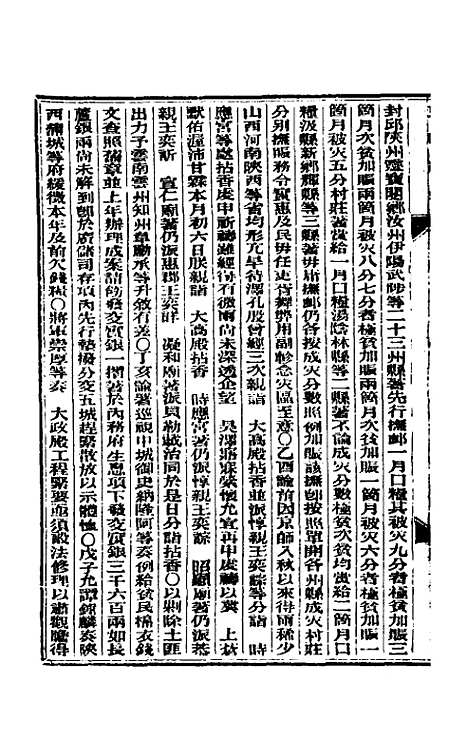 封邱陝州靈寶閿鄉汝州伊陽武陟等二十三州縣著先行撫卹一月口糧其被灾九分者極貧加賑三
箇月次貧加賑兩箇月被灾八分七分者極貧加賑兩箇月次貧加賑一箇月被灾六分者極貧加賑一
箇月被灾五分村莊著賞給一月口糧湯陰林縣等二縣著不論成灾分數極貧次貧均賞給一箇月口
糧汲縣新鄉輝縣等三縣著毋庸撫卹仍各按成灾分數照例加賑該撫卽按照單開各州縣成灾村莊
分別撫賑務令實惠及民毋任吏胥舞弊用副軫念灾區至意〇乙酉諭前因京師入秋以來得雨稀少
山西河南陝西等省均形亢旱待澤孔殷曾經三次親詣 大高殿拈香並派惇親王奕誴等分詣 時
應宮等處拈香虔申祈禱雖經得有微雨尚未深透企望 昊澤彌深縈懷允宜再申虔禱以冀 上蒼
默佑渥沛甘霖本月初六日朕親詣 大高殿拈香 時應宮著仍派惇親王奕誴 昭顯廟著仍派恭
親王奕訢 宣仁廟著仍派惠郡王奕詳 凝和廟著派貝勒載治同於是日分詣拈香〇以剿除土匪
出力予雲南雲州知州章勳承等升敘有差〇丁亥諭著巡視中城御史納隆阿等奏例給貧民棉衣錢
文查照舊章並上年辦理成案請飭發交實銀一摺著於內務府生息項下發交實銀三千六百兩如長
蘆銀兩尚未解到卽於廣儲司存項內先行墊撥分交五城趕緊散放以示體恤〇戊子允譚鍾麟奏陝
西蒲城等府緩徵本年及前欠錢糧〇將軍崇厚等奏 大政殿工程緊要亟須設法修理以肅觀瞻得